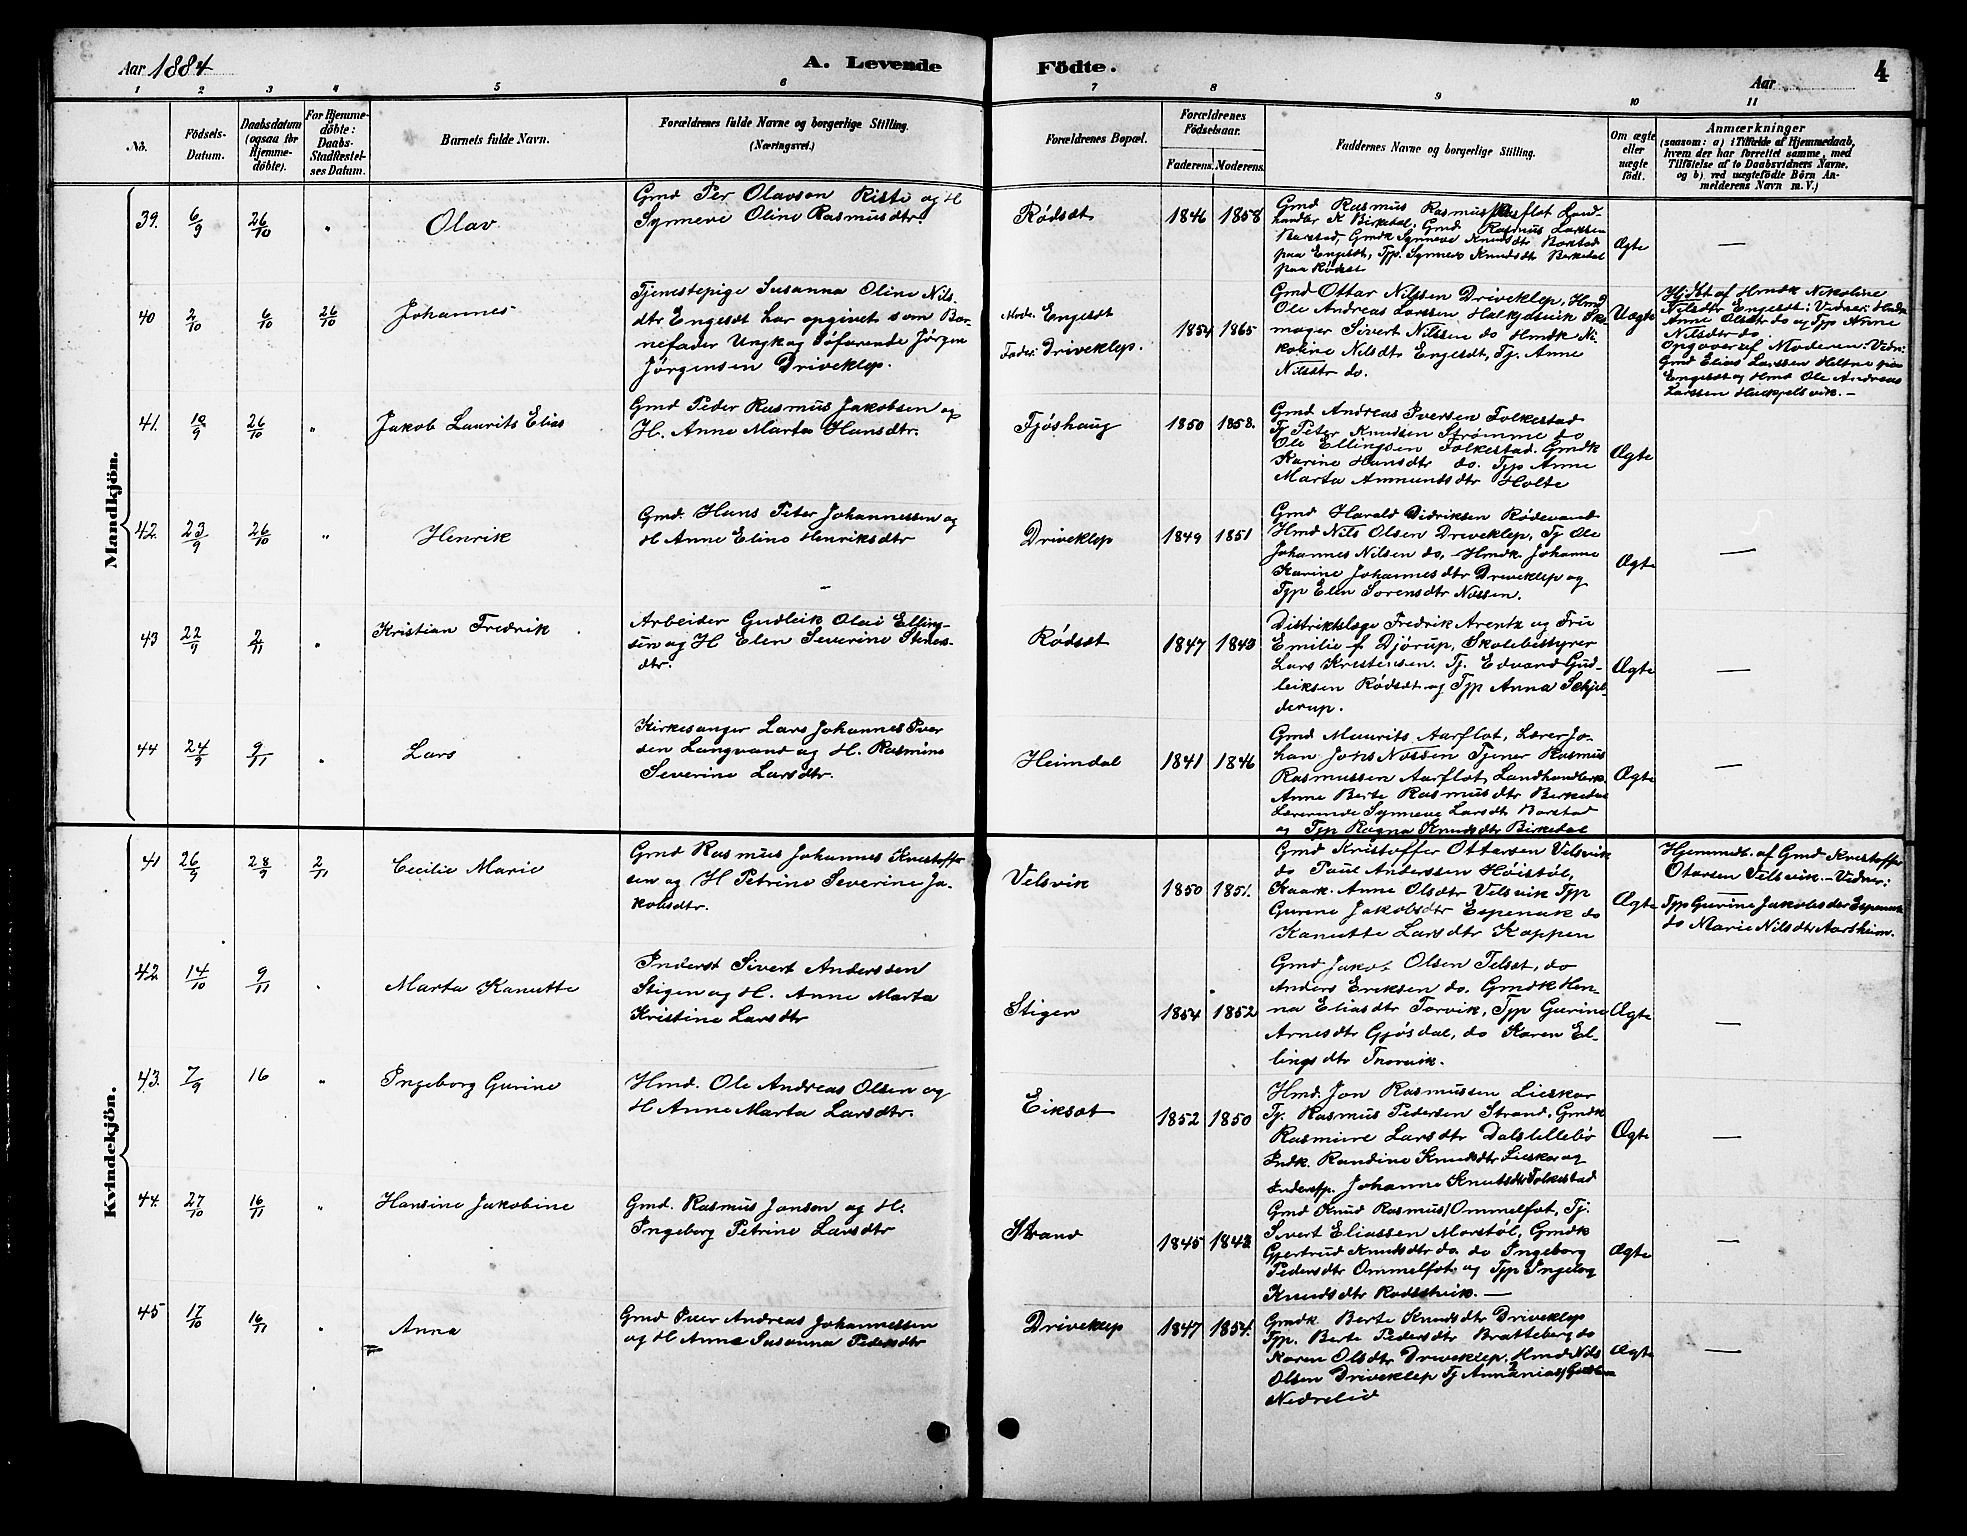 Aar 1884
A. Levende
Födte.
Aar
4
1 2 3 4 5 6 7 8 9 10 11
No.
Födsels-
Datum.
Daabsdatum
(ogsaa for
Hjemme-
döbte).
For Hjemme-
döbte:
Daabs-
Stadfæstel-
ses Datum.
Barnets fulde Navn.
Forældrenes fulde Navne og borgerlige Stilling.
(Næringsvei.)
Forældrenes Bopæl.
Forældrenes
Födselsaar.
Faderens. Moderens.
Faddernes Navne og borgerlige Stilling.
Om ægte
eller
uægte
födt.
Anmærkninger
(saasom: a) i Tilfælde af Hjemmedaab,
hvem der har forrettet samme, med
Tilföielse af to Daabsvidners Navne,
og b) ved uægtefödte Börn An-
melderens Navn m. V.)
Mandkjön.
39. 6/9 26/10 "
Olav
Gmd Per Olavson Riste og H
Synneve Oline Rasmusdtr.
Rødsdt
1846 1858
Gmd Rasmus Rasmus Aarflot Land-
handler K Birkedal, Gmd Rasmus Larssen
Barstad, Gmdk Synneve Knudsdtr Barstad
paa Engesdt, Typ. Synneve Knudsdtr Berkedal
paa Rødsæt
Ægte
—
40 2/10 6/10 26/10
Johannes
Tjenestepige Susanna Oline Nils-
dtr Engesdt har opgivet som Bar-
nefader Ungk og søfarende Jørgen
Jørgensen Driveklep.
Mod. Engesdt
Fader: Driveklep.
1854 1865
Gmd Ottar Nilssen Driveklep, Hmd
Ole Andreas Larssen Halkjelsvik Sko-
mager Sivert Nilssen do Hmdk Ni-
koline Nilsdtr Engesdt, Tj. Anne
Nilsdtr do.
Uægte
Hj.dt af Hmdk Nikoline
Nilsdtr Engesdt: Vidner: Hmdk
Anne Olsdtr do og Typ Anne
Nilsdtr do
Opgover af Moderen: Vidn:
Gmd Elias Larssen Heltne paa
Engesdt og Hmd Ole Andreas
Larssen Hukjelsvik. —
41. 10/9 26/10 "
Jakob Laurits Elias
Gmd Peder Rasmus Jakobsen og
H. Anne Marta Hansdtr.
Fjøshaug
1850 1858.
Gmd Andreas Iversen Folkestad
Tj Peter Knudsen Strømme do
Ole Ellingsen Folkestad. Gmdk
Karine Hansdtr do. Typ Anne
Marta Ammundsdtr Holte
Ægte
42. 23/9 26/10 "
Henrik
Gmd. Hans Peter Johannessen og
H Anne Eline Henriksdtr
Driveklep
1849 1851
Gmd Harald Didriksen Rødevand
Hmd Nils Olsen Driveklep, Tj Ole
Johannes Nilsen do, - Hmdk. Johanne
Karine Johannesdtr Driveklep og
Typ Elen Sorensdtr Nossen.
Ægte
—
43 22/9 2/11 "
Kristian Fredrik
Arbeider Gudleik Olai Elling-
sen og H Elen Severine Stener-
dtr.
Rødsdt
1847 1843
Distriktslæge Fredrik Arentz og Frue
Emilie f. Djørup, Skolebestyrer
Lars Kristensen. Tj. Edvard Gud-
leiksen Rødsdt og Typ Anna Schjel-
derup.
Ægte
—
44 24/9 9/11 "
Lars
Kirkesanger Lars Johannes Iver
sen Langvand og H. Rasmine
Severine Larsdtr.
Heimdal
1841 1846
Gmd Maurits Aarflot, Lærer Jo-
han Johs Nossen Tjener Rasmus
Rasmussen Aarflot, Landhandlerk
Anne Berte Rasmusdtr Berkedal
Lærerinde Synneve Larsdt Barstad
og Typ Ragna Knudsdtr Birkedal
Ægte
—
Kvindekjön.
41 26/9 28/9 2/11
Cecilie Marie
Gmd Rasmus Johannes Kristoffer
sen og H Petrine Severine Ja-
kobsdtr.
Velsvik
1850 1851.
Gmd Kristoffer Ottarsen Velsvik
do Paul Anderssen Høistøl,
Kaark. Anne Olsdtr Velsvik Typ
Gurine Jakobsdtr Espenak do
Kanutte Larsdtr Koppen
Ægte
Hjemmdt. af Gmd Kristoffer
Otarsen Velsvik. - Vidner:
Typ Gurine Jakobsdtr Espenak
do Marie Nilsdtr Aarsheim.
42 14/10 9/11 "
Marta Kanutte
Inderst Sivert Anderssen
Stigen og H. Anne Marta
Kristine Larsdtr
Stigen
1854 1852
Gmd Jakob Olsen Telset, do
Anders Eriksen do. Gmdk Han-
na Eliasdtr Torvik, Typ Gurine
Arnesdtr Gjøsdal, do Karen El-
lingsdtr Thorvik.
Ægte
—
43. 7/9 16 "
Ingeborg Gurine
Hmd. Ole Andreas Olsen og
H Anne Marta Larsdtr.
Eiksæt
1852 1850
Hmd. Jon Rasmussen Lieskar
Tj. Rasmus Pedersen Strand, Gmdk
Rasmine Larsdtr Dalslillebø
Indk. Randine Knudsdtr Lieskar og
Indersp. Johanne Knudsdtr Folkestad
Ægte
—
44. 27/10 16/11 "
Hansine Jakobine
Gmd. Rasmus Jonson og H.
Ingeborg Petrine Larsdtr
Strand
1845 1843
Gmd Knud Rasmus/Ommelfot, Tj.
Sivert Eliassen Morstøl, Gmdk
Gjertrud Knudsdtr do. do Ingeborg
Pedersdtr Ommelfot og Typ Ingebog
Knudsdtr Rødsethvik. —
Ægte
—
45 17/10 16/11 "
Anna
Gmd Iver Andreas Johannessen
og H Anne Susanna Pedersdtr
Driveklep
1847 1854.
Gmdk Berte Knudsdtr Driveklep
Typ. Berte Pedersdtr Bratteberg do
Karen Olsdtr Driveklep, Hmd Nils
Olsen Driveklep Tj Annanias/
Nedrelid
Ægte
—